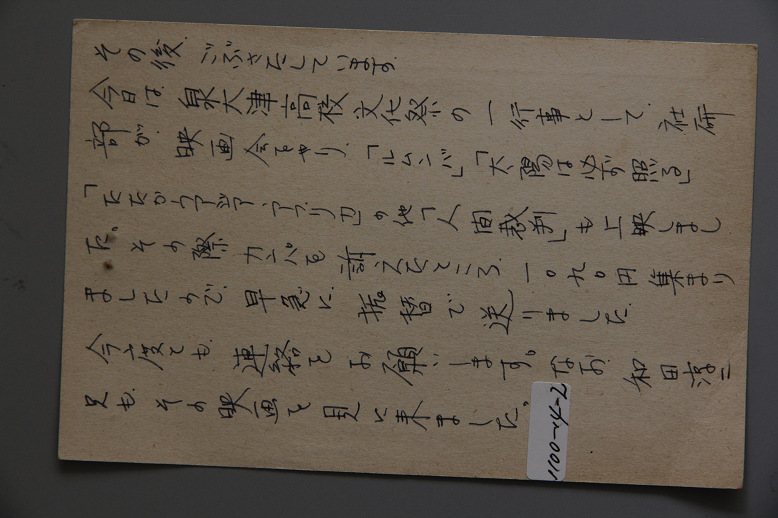 その後、ごぶさたしています。
今日は、泉大津高校文化祭の一行事として、社研
部が、映画会をやり、「ルムンバ」「太陽は必ず照る」
「たたかうアジア、アフリカ」の他「人間裁判」も上映しまし
た。その際カンパを訴えたところ、一〇九〇円集まり
ましたので、早急に振替で送りました。
今度とも、連絡をお願いします。なお、和田淳二
兄も、その映画を見に来ました。
7-4~0011